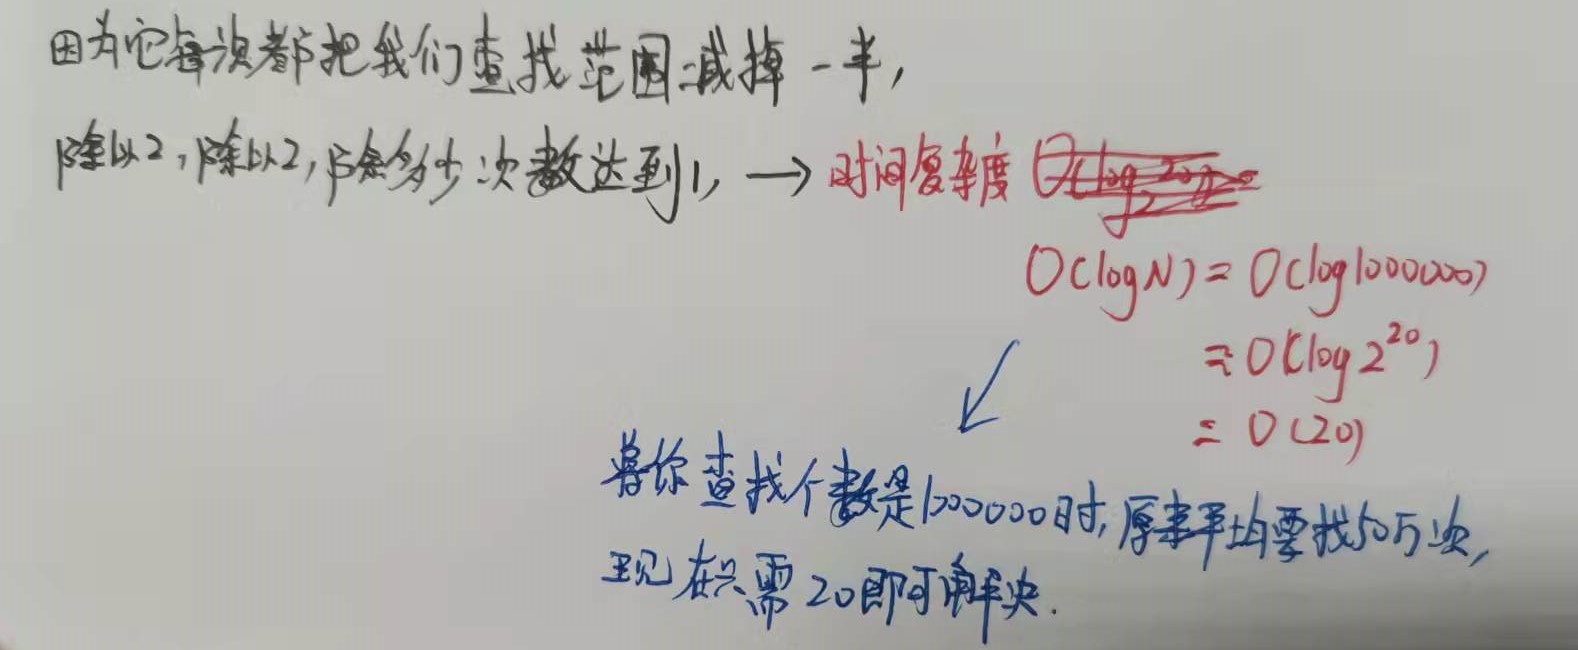 因为它每次都把我们查找范围减掉一半,
除以2,除以2,除多少次数达到1, → 时间复杂度
O(logN) = O(log1000000)
= O(log 2^20)
= O(20)
当你查找个数是1000000时,原来平均要找50万次,
现在只需20即可解决.